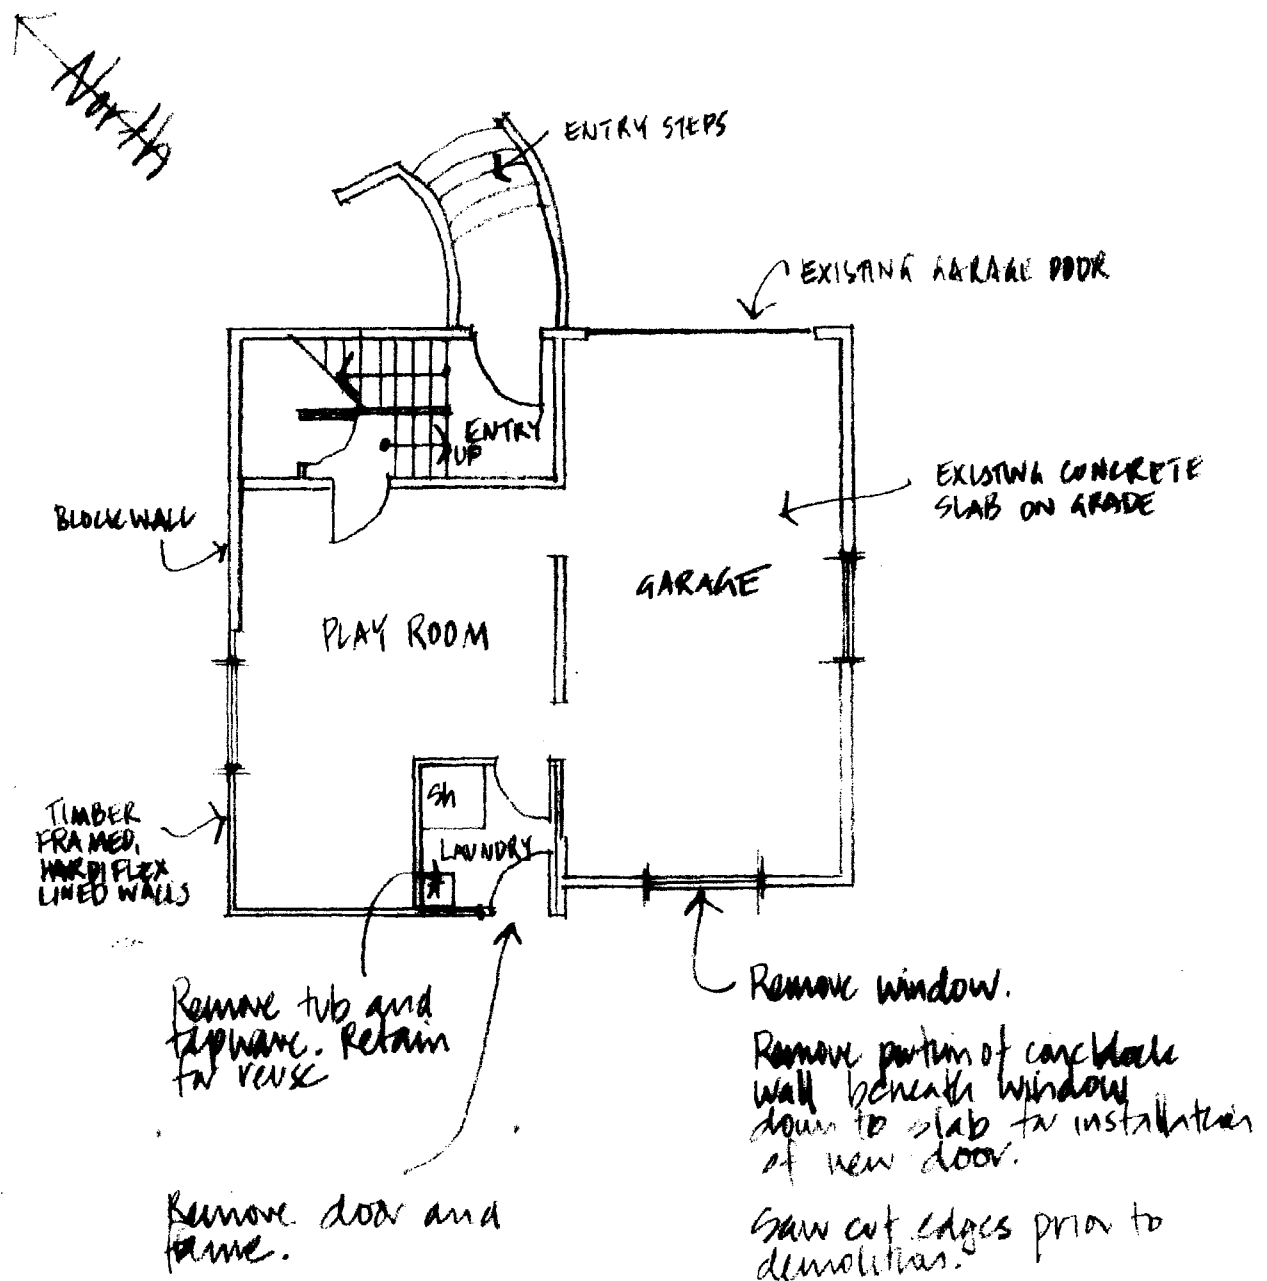 North
ENTRY STEPS
EXISTING GARAGE DOOR
ENTRY
UP
EXISTING CONCRETE
SLAB ON GRADE
BLOCK WALL
GARAGE
PLAY ROOM
Sh
TIMBER
FRAMED,
HARDIFLEX
LINED WALLS
LAUNDRY
Remove tub and
tapware. Retain
for reuse
Remove window.
Remove portion of conc block
wall beneath window
down to slab for installation
of new door.
Remove door and
frame.
Saw cut edges prior to
demolition.